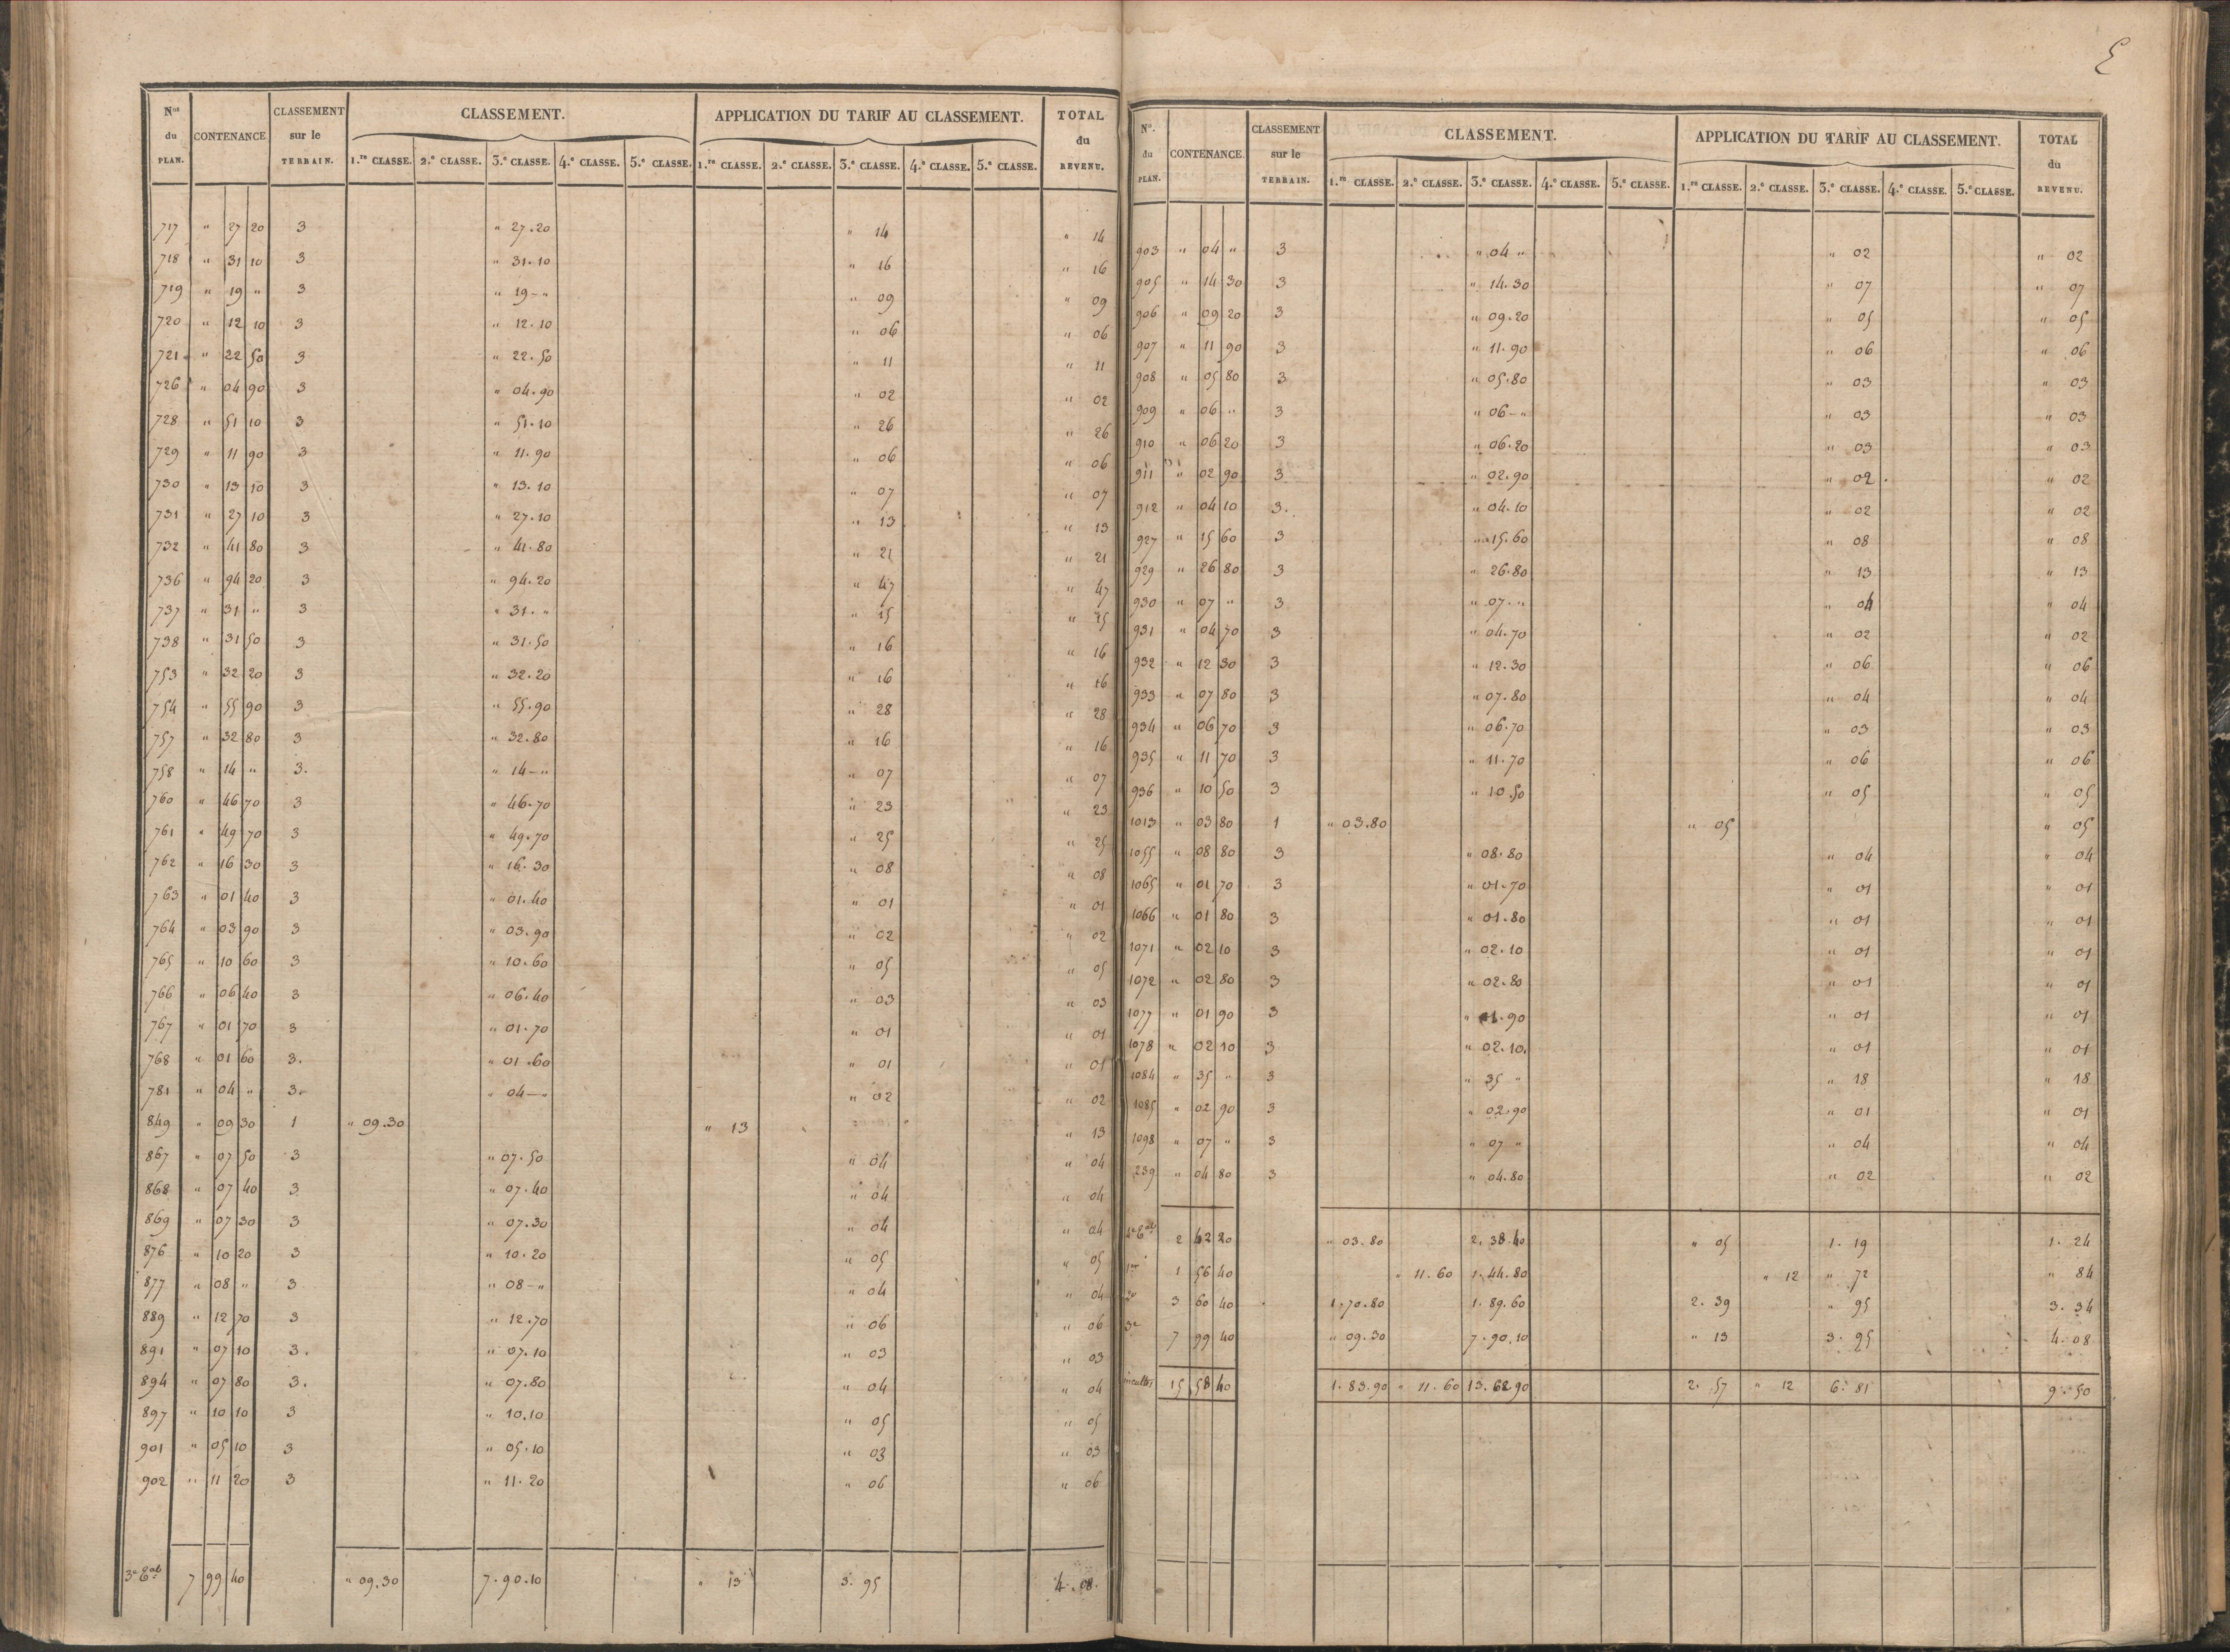 Nos du PLAN. CONTENANCE CLASSEMENT sur le TERRAIN. CLASSEMENT. APPLICATION DU TARIF AU CLASSEMENT. TOTAL du REVENU.
1.re CLASSE. 2.e CLASSE. 3.e CLASSE. 4.e CLASSE. 5.e CLASSE. 1.re CLASSE. 2.e CLASSE. 3.e CLASSE. 4.e CLASSE. 5.e CLASSE.
717 " 27 20 3 " 27.20 " 14 " 14
718 " 31 10 3 " 31.10 " 16 " 16
719 " 19 " 3 " 19-" " 09 " 09
720 " 12 10 3 " 12.10 " 06 " 06
721 " 22 50 3 " 22.50 " 11 " 11
726 " 04 90 3 " 04.90 " 02 " 02
728 " 51 10 3 " 51.10 " 26 " 26
729 " 11 90 3 " 11.90 " 06 " 06
730 " 13 10 3 " 13.10 " 07 " 07
731 " 27 10 3 " 27.10 " 13 " 13
732 " 41 80 3 " 41.80 " 21 " 21
736 " 94 20 3 " 94.20 " 47 " 47
737 " 31 " 3 " 31." " 15 " 15
738 " 31 50 3 " 31.50 " 16 " 16
753 " 32 20 3 " 32.20 " 16 " 16
754 " 55 90 3 " 55.90 " 28 " 28
757 " 32 80 3 " 32.80 " 16 " 16
758 " 14 " 3. " 14-" " 07 " 07
760 " 46 70 3 " 46.70 " 23 " 23
761 " 49 70 3 " 49.70 " 25 " 25
762 " 16 30 3 " 16.30 " 08 " 08
763 " 01 40 3 " 01.40 " 01 " 01
764 " 03 90 3 " 03.90 " 02 " 02
765 " 10 60 3 " 10.60 " 05 " 05
766 " 06 40 3 " 06.40 " 03 " 03
767 " 01 70 3 " 01.70 " 01 " 01
768 " 01 60 3. " 01.60 " 01 " 01
781 " 04 " 3. " 04-" " 02 " 02
849 " 09 30 1 " 09.30 " 13 " 13
867 " 07 50 3 " 07.50 " 04 " 04
868 " 07 40 3 " 07.40 " 04 " 04
869 " 07 30 3 " 07.30 " 04 " 04
876 " 10 20 3 " 10.20 " 05 " 05
877 " 08 " 3 " 08-" " 04 " 04
889 " 12 70 3 " 12.70 " 06 " 06
891 " 07 10 3. " 07.10 " 03 " 03
894 " 07 80 3. " 07.80 " 04 " 04
897 " 10 10 3 " 10.10 " 05 " 05
901 " 05 10 3 " 05.10 " 03 " 03
902 " 11 20 3 " 11.20 " 06 " 06
3e Eab 7 99 40 " 09.30 7.90.10 " 13 3. 95 4.08.
No. du PLAN. CONTENANCE CLASSEMENT sur le TERRAIN. CLASSEMENT. APPLICATION DU TARIF AU CLASSEMENT. TOTAL du REVENU.
1.re CLASSE. 2.e CLASSE. 3.e CLASSE. 4.e CLASSE. 5.e CLASSE. 1.re CLASSE. 2.e CLASSE. 3.e CLASSE. 4.e CLASSE. 5.e CLASSE.
903 " 04 " 3 " 04 " " 02 " 02
905 " 14 30 3 " 14.30 " 07 " 07
906 " 09 20 3 " 09.20 " 05 " 05
907 " 11 90 3 " 11.90 " 06 " 06
908 " 05 80 3 " 05.80 " 03 " 03
909 " 06 " 3 " 06-" " 03 " 03
910 " 06 20 3 " 06.20 " 03 " 03
911 " 02 90 3 " 02.90 " 02 " 02
912 " 04 10 3. " 04.10 " 02 " 02
927 " 15 60 3 " 15.60 " 08 " 08
929 " 26 80 3 " 26.80 " 13 " 13
930 " 07 " 3 " 07." " 04 " 04
931 " 04 70 3 " 04.70 " 02 " 02
932 " 12 30 3 " 12.30 " 06 " 06
933 " 07 80 3 " 07.80 " 04 " 04
934 " 06 70 3 " 06.70 " 03 " 03
935 " 11 70 3 " 11.70 " 06 " 06
936 " 10 50 3 " 10.50 " 05 " 05
1013 " 03 80 1 " 03.80 " 05 " 05
1055 " 08 80 3 " 08.80 " 04 " 04
1065 " 01 70 3 " 01.70 " 01 " 01
1066 " 01 80 3 " 01.80 " 01 " 01
1071 " 02 10 3 " 02.10 " 01 " 01
1072 " 02 80 3 " 02.80 " 01 " 01
1077 " 01 90 3 " 01.90 " 01 " 01
1078 " 02 10 3 " 02.10. " 01 " 01
1084 " 35 " 3 " 35 " " 18 " 18
1085 " 02 90 3 " 02.90 " 01 " 01
1098 " 07 " 3 " 07 " " 04 " 04
239 " 04 80 3 " 04.80 " 02 " 02
4e Eab 2 42 20 " 03.80 2.38.40 " 05 1.19 1.24
1er 1 56 40 " 11.60 1.44.80 " 12 " 72 " 84
2e 3 60 40 1.70.80 1.89.60 2.39 " 95 3.34
3e 7 99 40 " 09.30 7.90.10 " 13 3.95 4.08
incultes 15 58 40 1.83.90 " 11.60 13.62.90 2.57 " 12 6.81 9.50